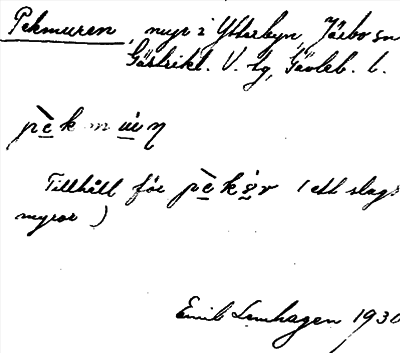 Pekmuren, myr i Ytterbyn, Järbo sn
Gästrikl. V. tg, Gävleb. l.
pèkmṳ̀ŋ
Tillhåll för pèkər (ett slags
myror)
Emil Lenhagen 1930